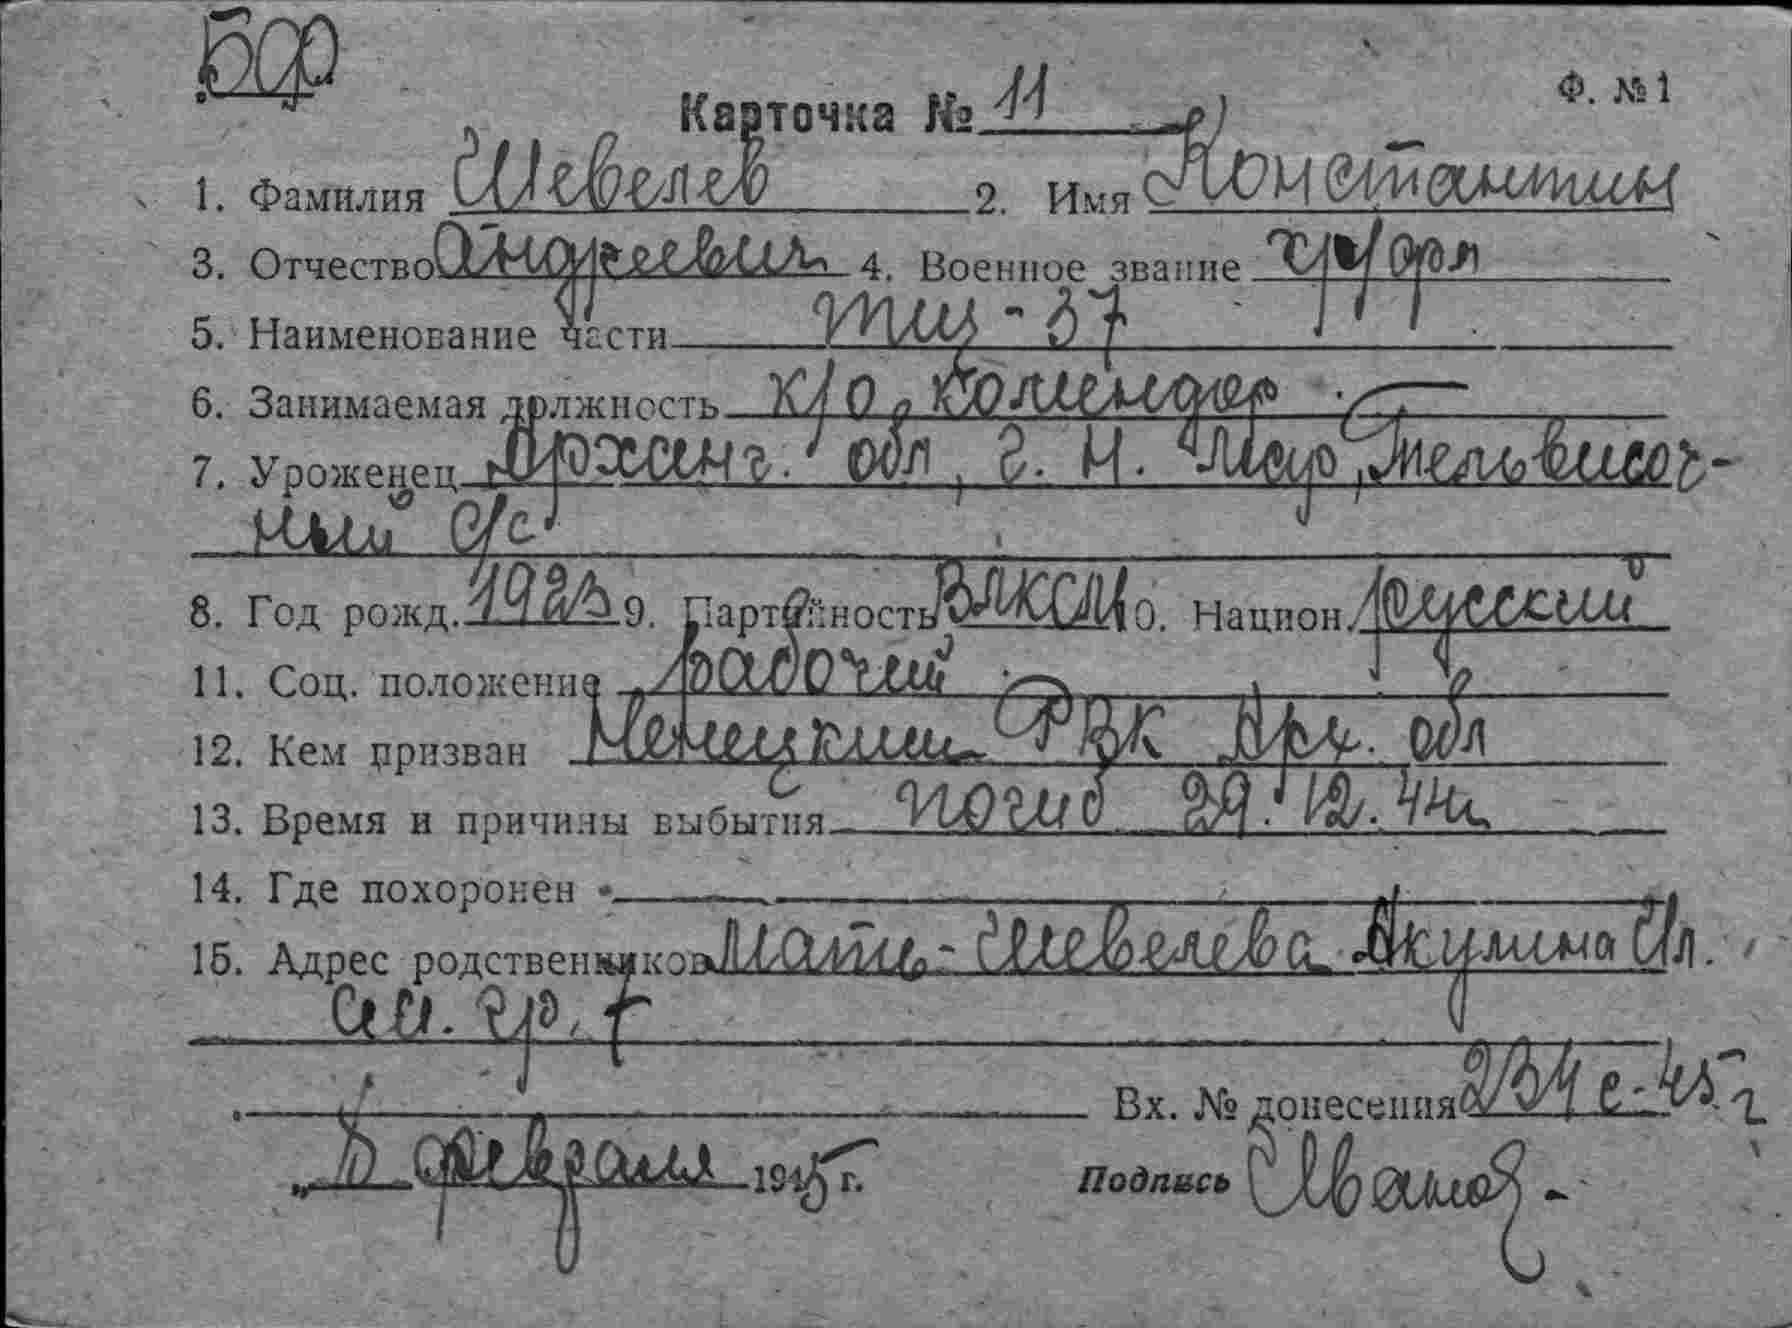 БФ
Карточка № 11 Ф. №1
1. Фамилия Шевелев 2. Имя Константин
3. Отчество Андреевич 4. Военное звание
5. Наименование части тщ-37
6. Занимаемая должность к/о. комендор
7. Уроженец Арханг. обл, г. Н. Мар, Тельвисоч-
ный с/с
8. Год рожд. 1923 9. Партийность ВЛКСМ 10. Национ. русский
11. Соц. положение рабочий
12. Кем призван Ненецким РВК Арх. обл
13. Время и причины выбытия погиб 29.12.44г.
14. Где похоронен
15. Адрес родственников Мать - Шевелева Акулина Ил.
ад. гр. 7
Вх. № донесения 234с-45 г
„5 февраля 1945 г. Подпись Иванов